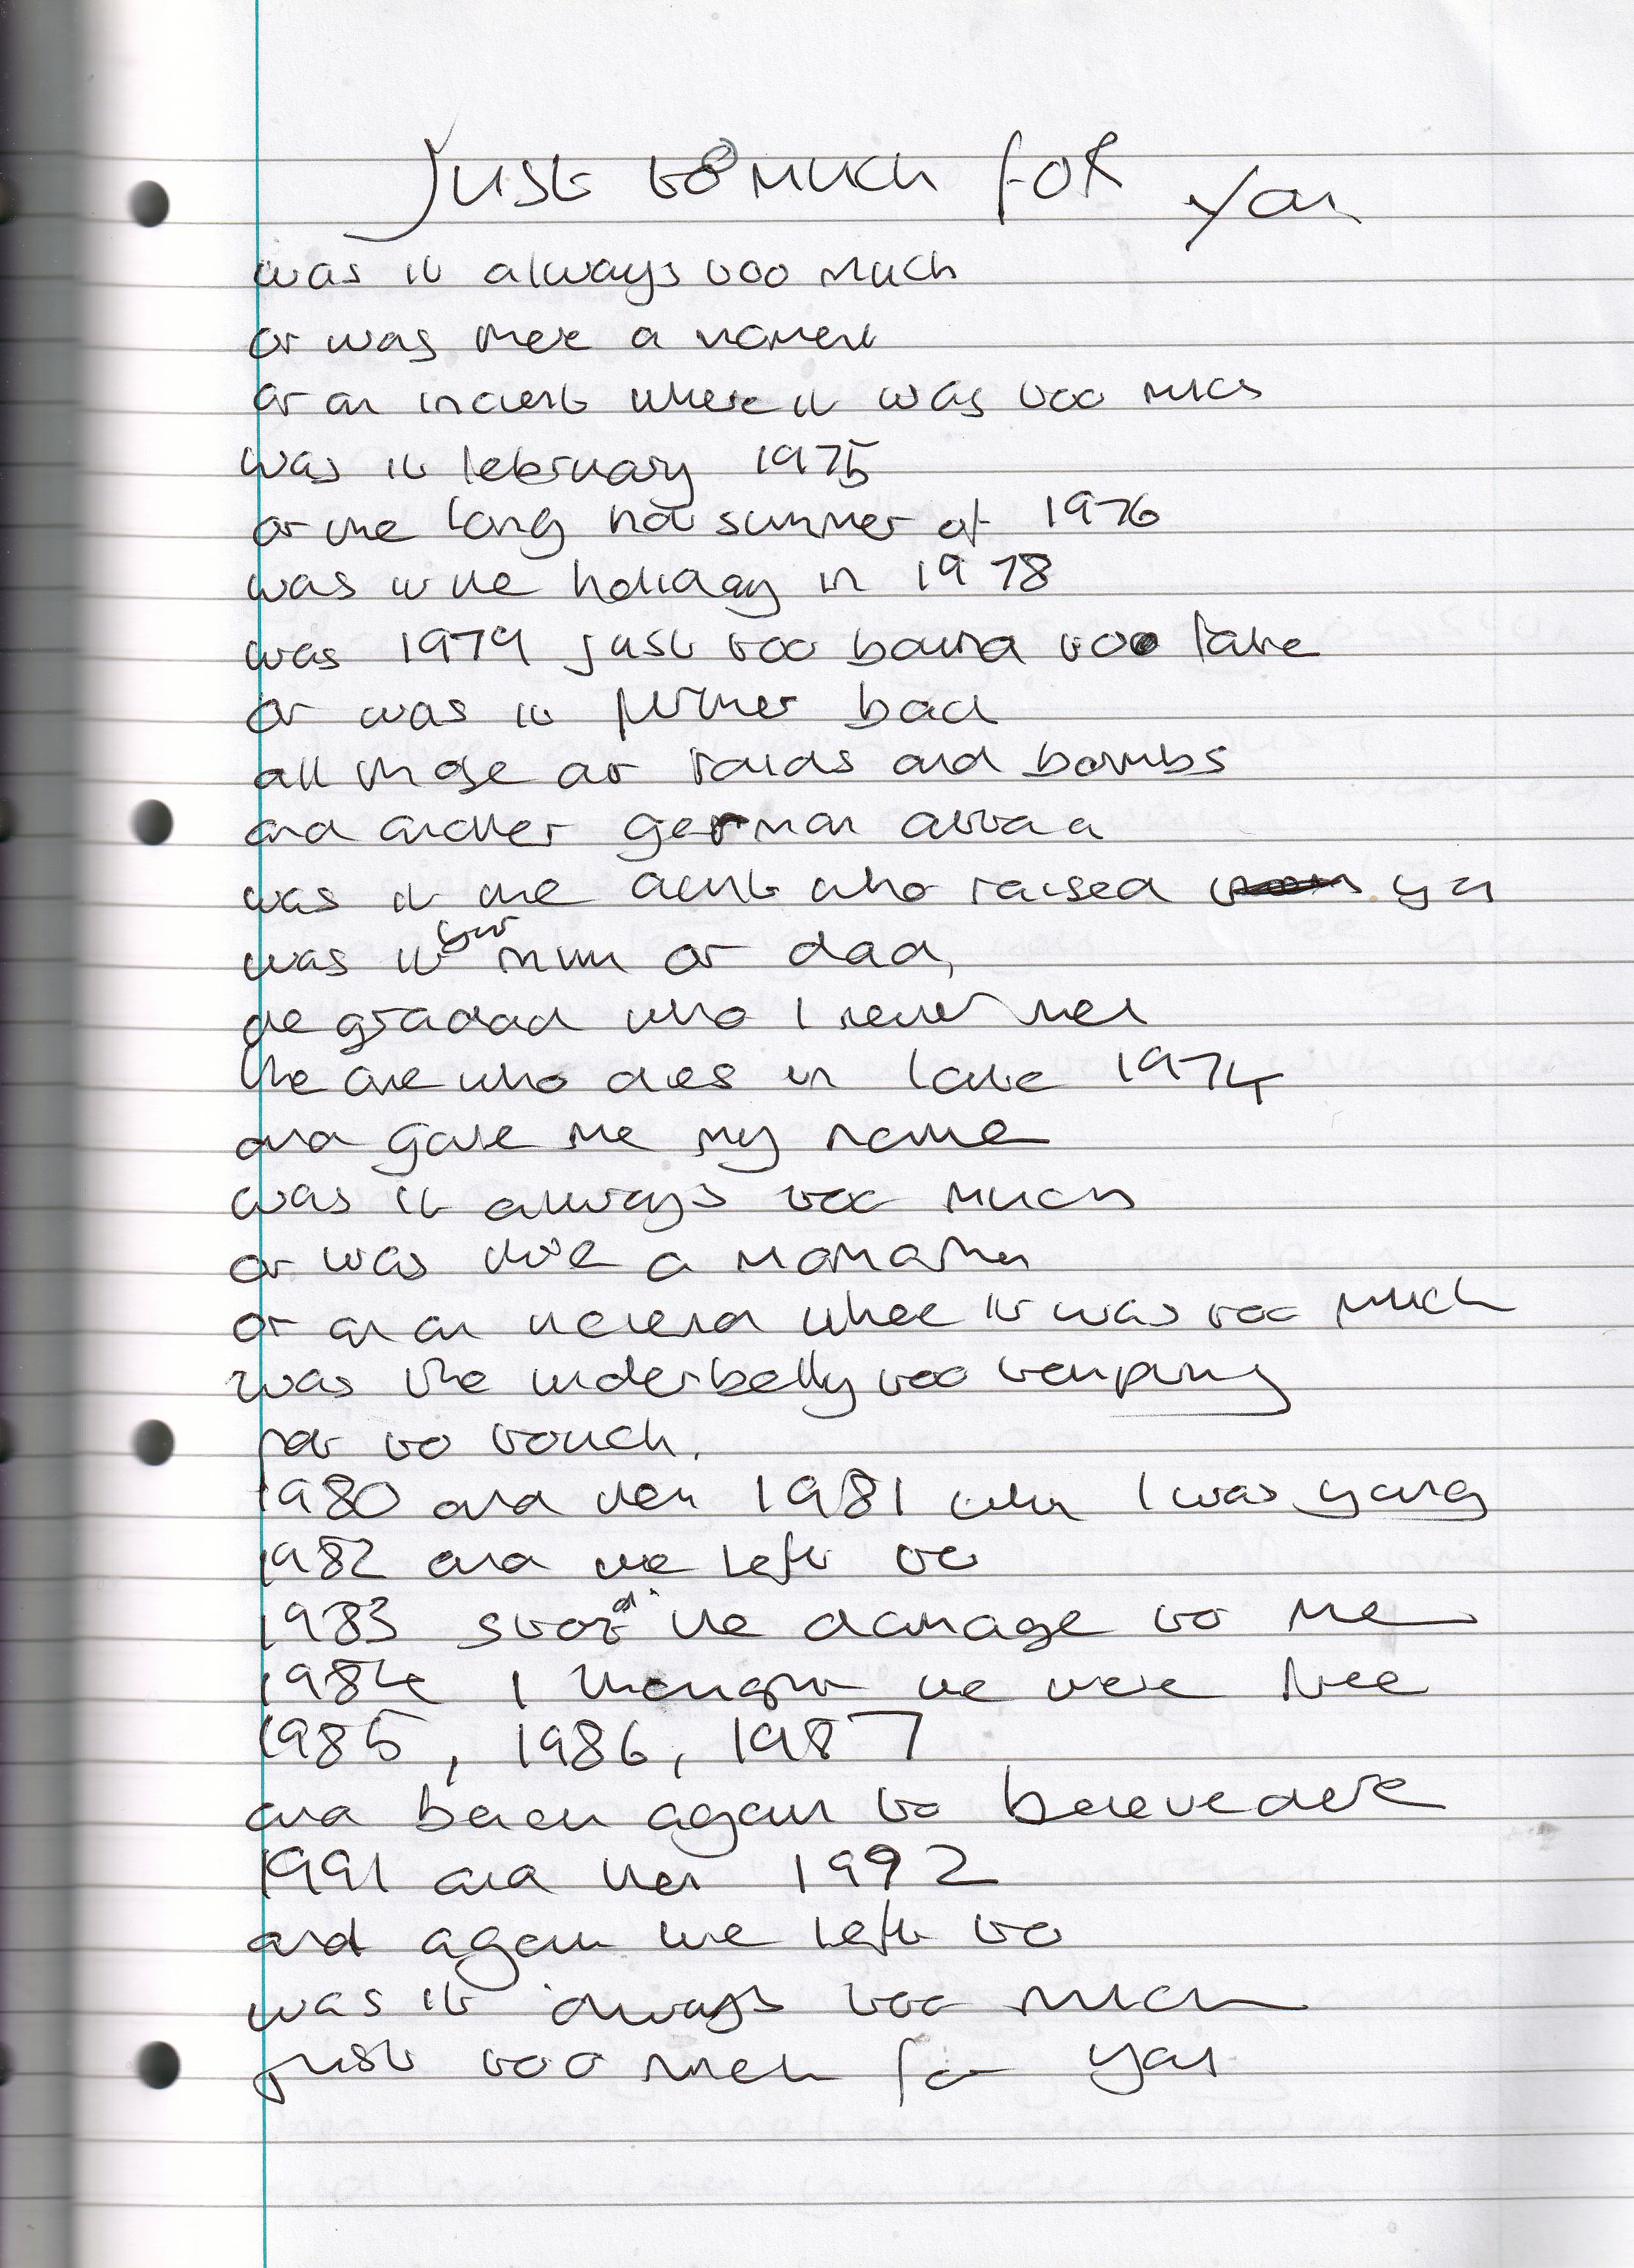 Just too much for you
was it always too much
or was there a moment
or an incident where it was too much
was it february 1975
or the long hot summer of 1976
was it the holiday in 1978
was 1979 just too bound too late
or was it further back
all those air raids and bombs
and another german attack
was it the aunt who raised you
was it your mum or dad,
the grandad who I never met
the one who dies in late 1974
and gave me my name
was it always too much
or was there a
or an an incident where it was too much
was the underbelly too tempting
not to touch.
1980 and then 1981 when I was young
1982 and we left to
1983 stood the damage to me
1984 I thought we were free
1985, 1986, 1987
and back again to
1991 and then 1992
and again we left to
was it always too much
just too much for you